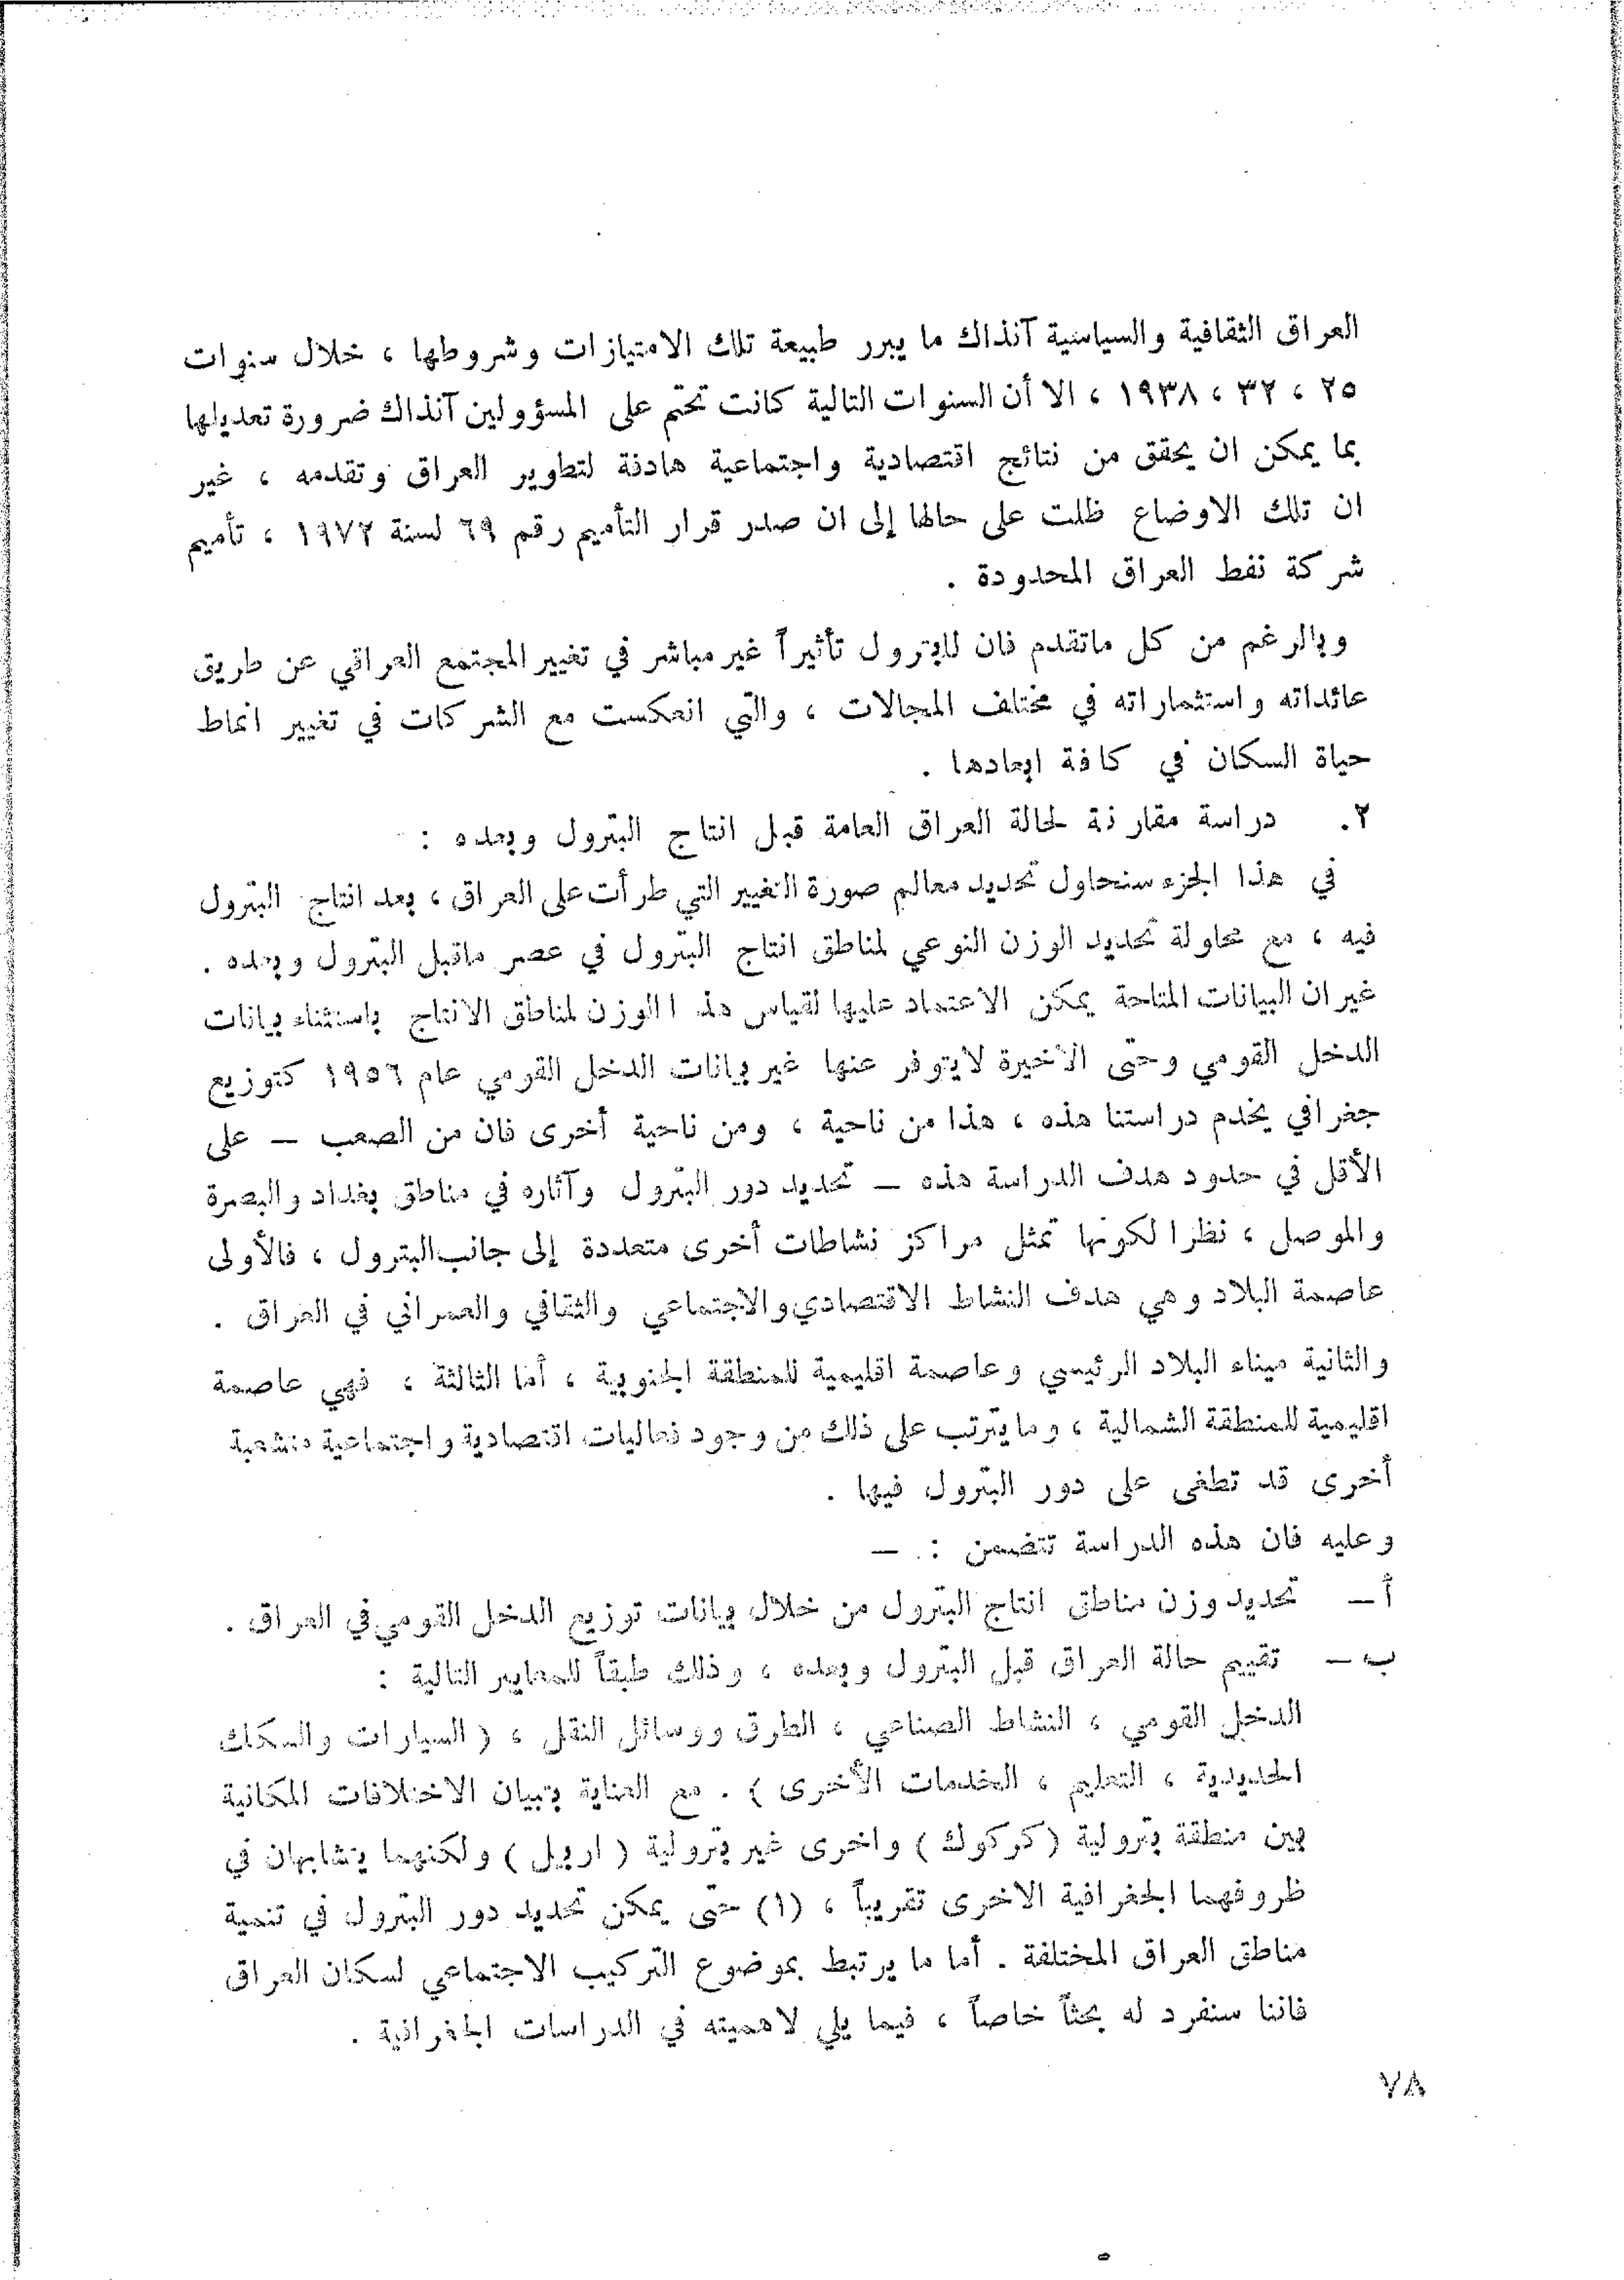 العراق الثقافية والسياسية آنذاك ما يبرر طبيعة تلك الامتيازات وشروطها ، خلال سنوات
٢٥ ، ٣٢ ، ١٩٣٨ ، الا أن السنوات التالية كانت تحتم على المسؤولين آنذاك ضرورة تعديلها
بما يمكن ان يحقق من نتائج اقتصادية واجتماعية هادفة لتطوير العراق وتقدمه ، غير
ان تلك الاوضاع ظلت على حالها إلى ان صدر قرار التأميم رقم ٦٩ لسنة ١٩٧٢ ، تأميم
شركة نفط العراق المحدودة .
وبالرغم من كل ماتقدم فان للبترول تأثيراً غير مباشر في تغيير المجتمع العراقي عن طريق
عائداته واستثماراته في مختلف المجالات ، والتي انعكست مع الشركات في تغيير انماط
حياة السكان في كافة ابعادها .
٢. دراسة مقارنة لحالة العراق العامة قبل انتاج البترول وبعده :
في هذا الجزء سنحاول تحديد معالم صورة التغيير التي طرأت على العراق ، بعد انتاج البترول
فيه ، مع محاولة تحديد الوزن النوعي لمناطق انتاج البترول في عصر ماقبل البترول وبعده .
غير ان البيانات المتاحة يمكن الاعتماد عليها لقياس هذا الوزن لمناطق الانتاج باستثناء بيانات
الدخل القومي وحتى الاخيرة لايتوفر عنها غير بيانات الدخل القومي عام ١٩٥٦ كتوزيع
جغرافي يخدم دراستنا هذه ، هذا من ناحية ، ومن ناحية أخرى فان من الصعب – على
الأقل في حدود هدف الدراسة هذه – تحديد دور البترول وآثاره في مناطق بغداد والبصرة
والموصل ، نظرا لكونها تمثل مراكز نشاطات أخرى متعددة إلى جانب البترول ، فالأولى
عاصمة البلاد وهي هدف النشاط الاقتصادي والاجتماعي والثقافي والعمراني في العراق .
والثانية ميناء البلاد الرئيسي وعاصمة اقليمية للمنطقة الجنوبية ، أما الثالثة ، فهي عاصمة
اقليمية للمنطقة الشمالية ، وما يترتب على ذلك من وجود فعاليات اقتصادية واجتماعية متشعبة
أخرى قد تطغى على دور البترول فيها .
وعليه فان هذه الدراسة تتضمن : –
أ – تحديد وزن مناطق انتاج البترول من خلال بيانات توزيع الدخل القومي في العراق .
ب – تقييم حالة العراق قبل البترول وبعده ، وذلك طبقاً للمعايير التالية :
الدخل القومي ، النشاط الصناعي ، الطرق ووسائل النقل ، ( السيارات والسكك
الحديدية ، التعليم ، الخدمات الأخرى ) . مع العناية بتبيان الاختلافات المكانية
بين منطقة بترولية ( كركوك ) واخرى غير بترولية ( اربيل ) ولكنهما يتشابهان في
ظروفهما الجغرافية الاخرى تقريباً ، (١) حتى يمكن تحديد دور البترول في تنمية
مناطق العراق المختلفة . أما ما يرتبط بموضوع التركيب الاجتماعي لسكان العراق
فاننا سنفرد له بحثاً خاصاً ، فيما يلي لاهميته في الدراسات الجغرافية .
٧٨